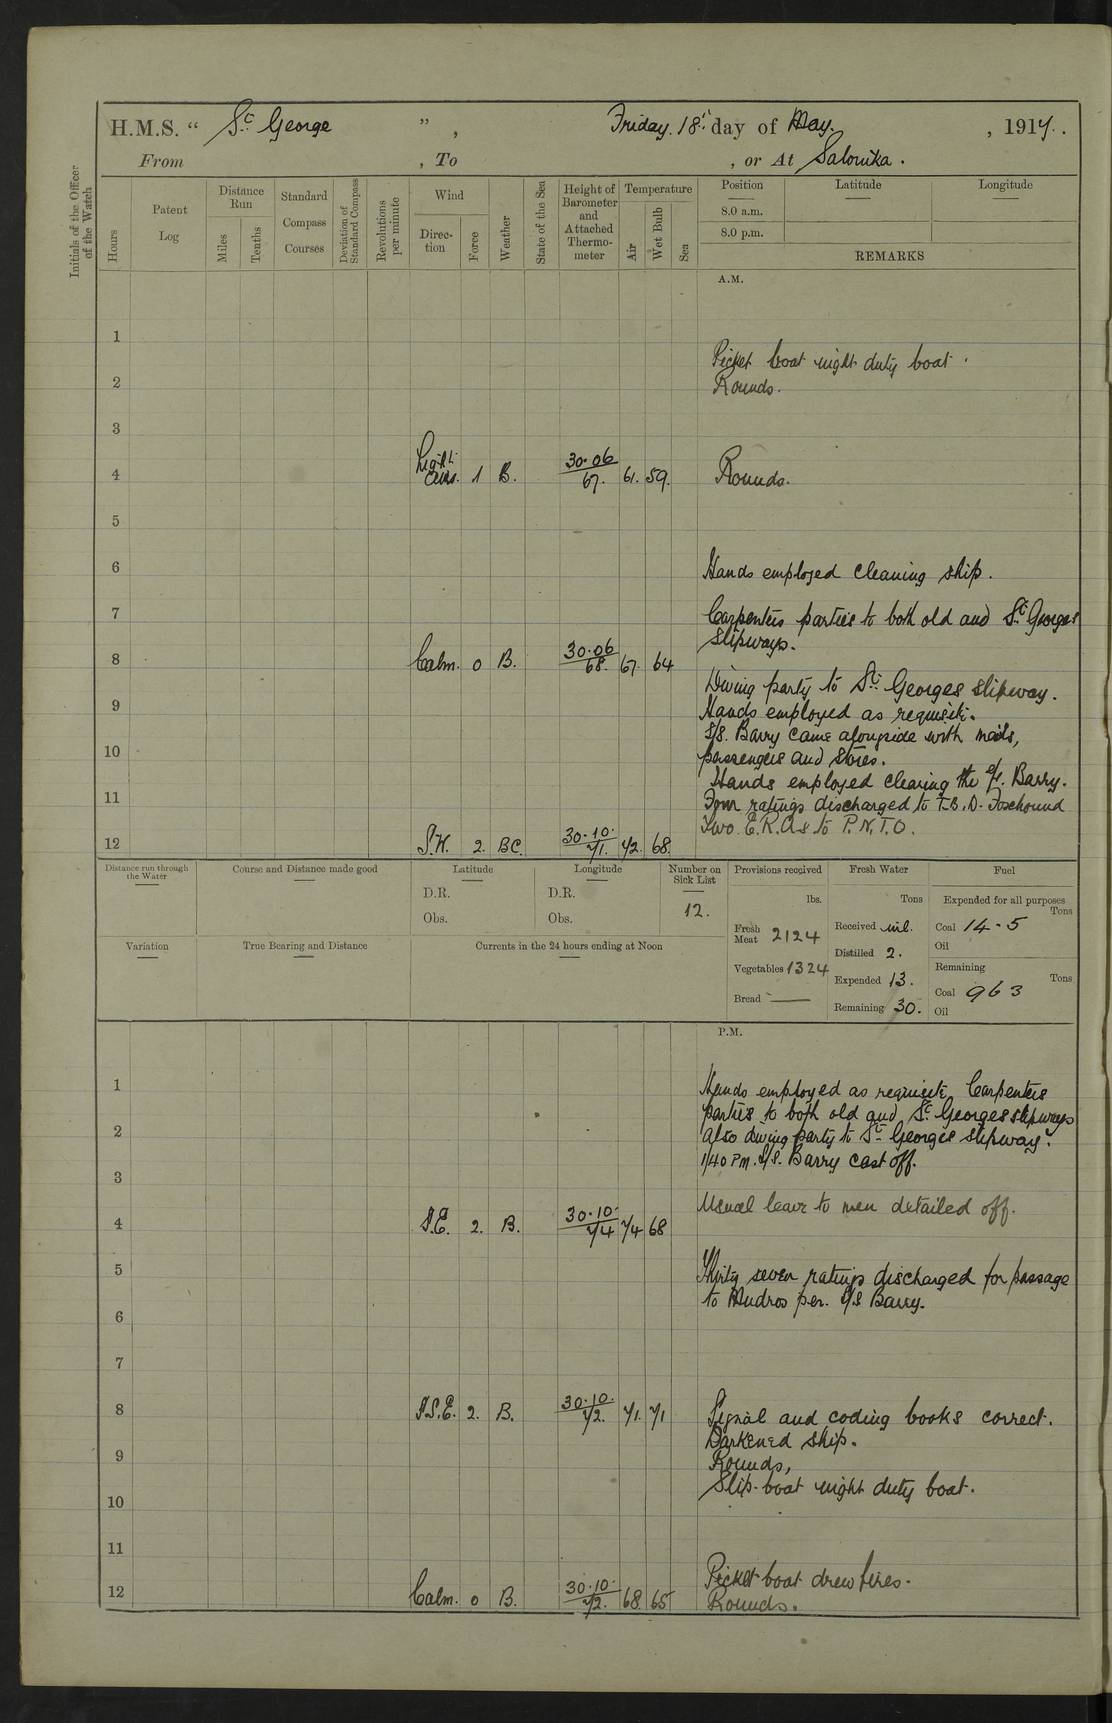 H.M.S. “ St. George ” , Friday. 18th day of May. , 1917. .
From , To , or At Salonika .
Initials of the Officer of the Watch
Hours
Patent Log
Distance Run
Miles
Tenths
Standard Compass Courses
Deviation of Standard Compass
Revolutions per minute
Wind
Direction
Force
Weather
State of the Sea
Height of Barometer and Attached Thermometer
Temperature
Air
Wet Bulb
Sea
Position Latitude Longitude
8.0 a.m.
8.0 p.m.
REMARKS
A.M.
1
Picket boat night duty boat .
2 Rounds.
3
4 Light airs. 1 B. 30.06 67. 61. 59. Rounds.
5
6 Hands employed cleaning ship .
7 Carpenters parties to both old and St. Georges
slipways.
8 Calm. 0 B. 30.06 68. 67. 64
Diving party to St. Georges slipway .
9 Hands employed as requisite.
S/S. Barry came alongside with mails,
10 passengers and stores.
Hands employed clearing the S/S. Barry.
11 Four ratings discharged to T.B.D. Foxhound
Two E.R.As to P.N.T.O.
12 S.W. 2. BC. 30.10. 71. 72. 68.
Distance run through the Water
Course and Distance made good
Latitude
D.R.
Obs.
Longitude
D.R.
Obs.
Number on Sick List
12.
Provisions received
lbs.
Fresh Meat 2124
Vegetables 1324
Bread —
Fresh Water
Tons
Received nil.
Distilled 2.
Expended 13.
Remaining 30.
Fuel
Expended for all purposes
Tons
Coal 14-5
Oil
Remaining
Tons
Coal 963
Oil
Variation
True Bearing and Distance
Currents in the 24 hours ending at Noon
P.M.
1 Hands employed as requisite Carpenters
parties to both old and St. Georges slipways
2 also diving party to St. Georges slipway.
1/40 PM. S/S. Barry cast off.
3
Usual leave to men detailed off.
4 S.E. 2. B. 30.10. 74 74 68
5 Thirty seven ratings discharged for passage
to Mudros per. S/S Barry.
6
7
8 S.S.E. 2. B. 30.10. 72. 71. 71 Signal and coding books correct.
Darkened ship.
9 Rounds,
Slip-boat night duty boat.
10
11
Picket boat drew fires.
12 Calm. 0 B. 30.10. 72. 68. 65 Rounds.